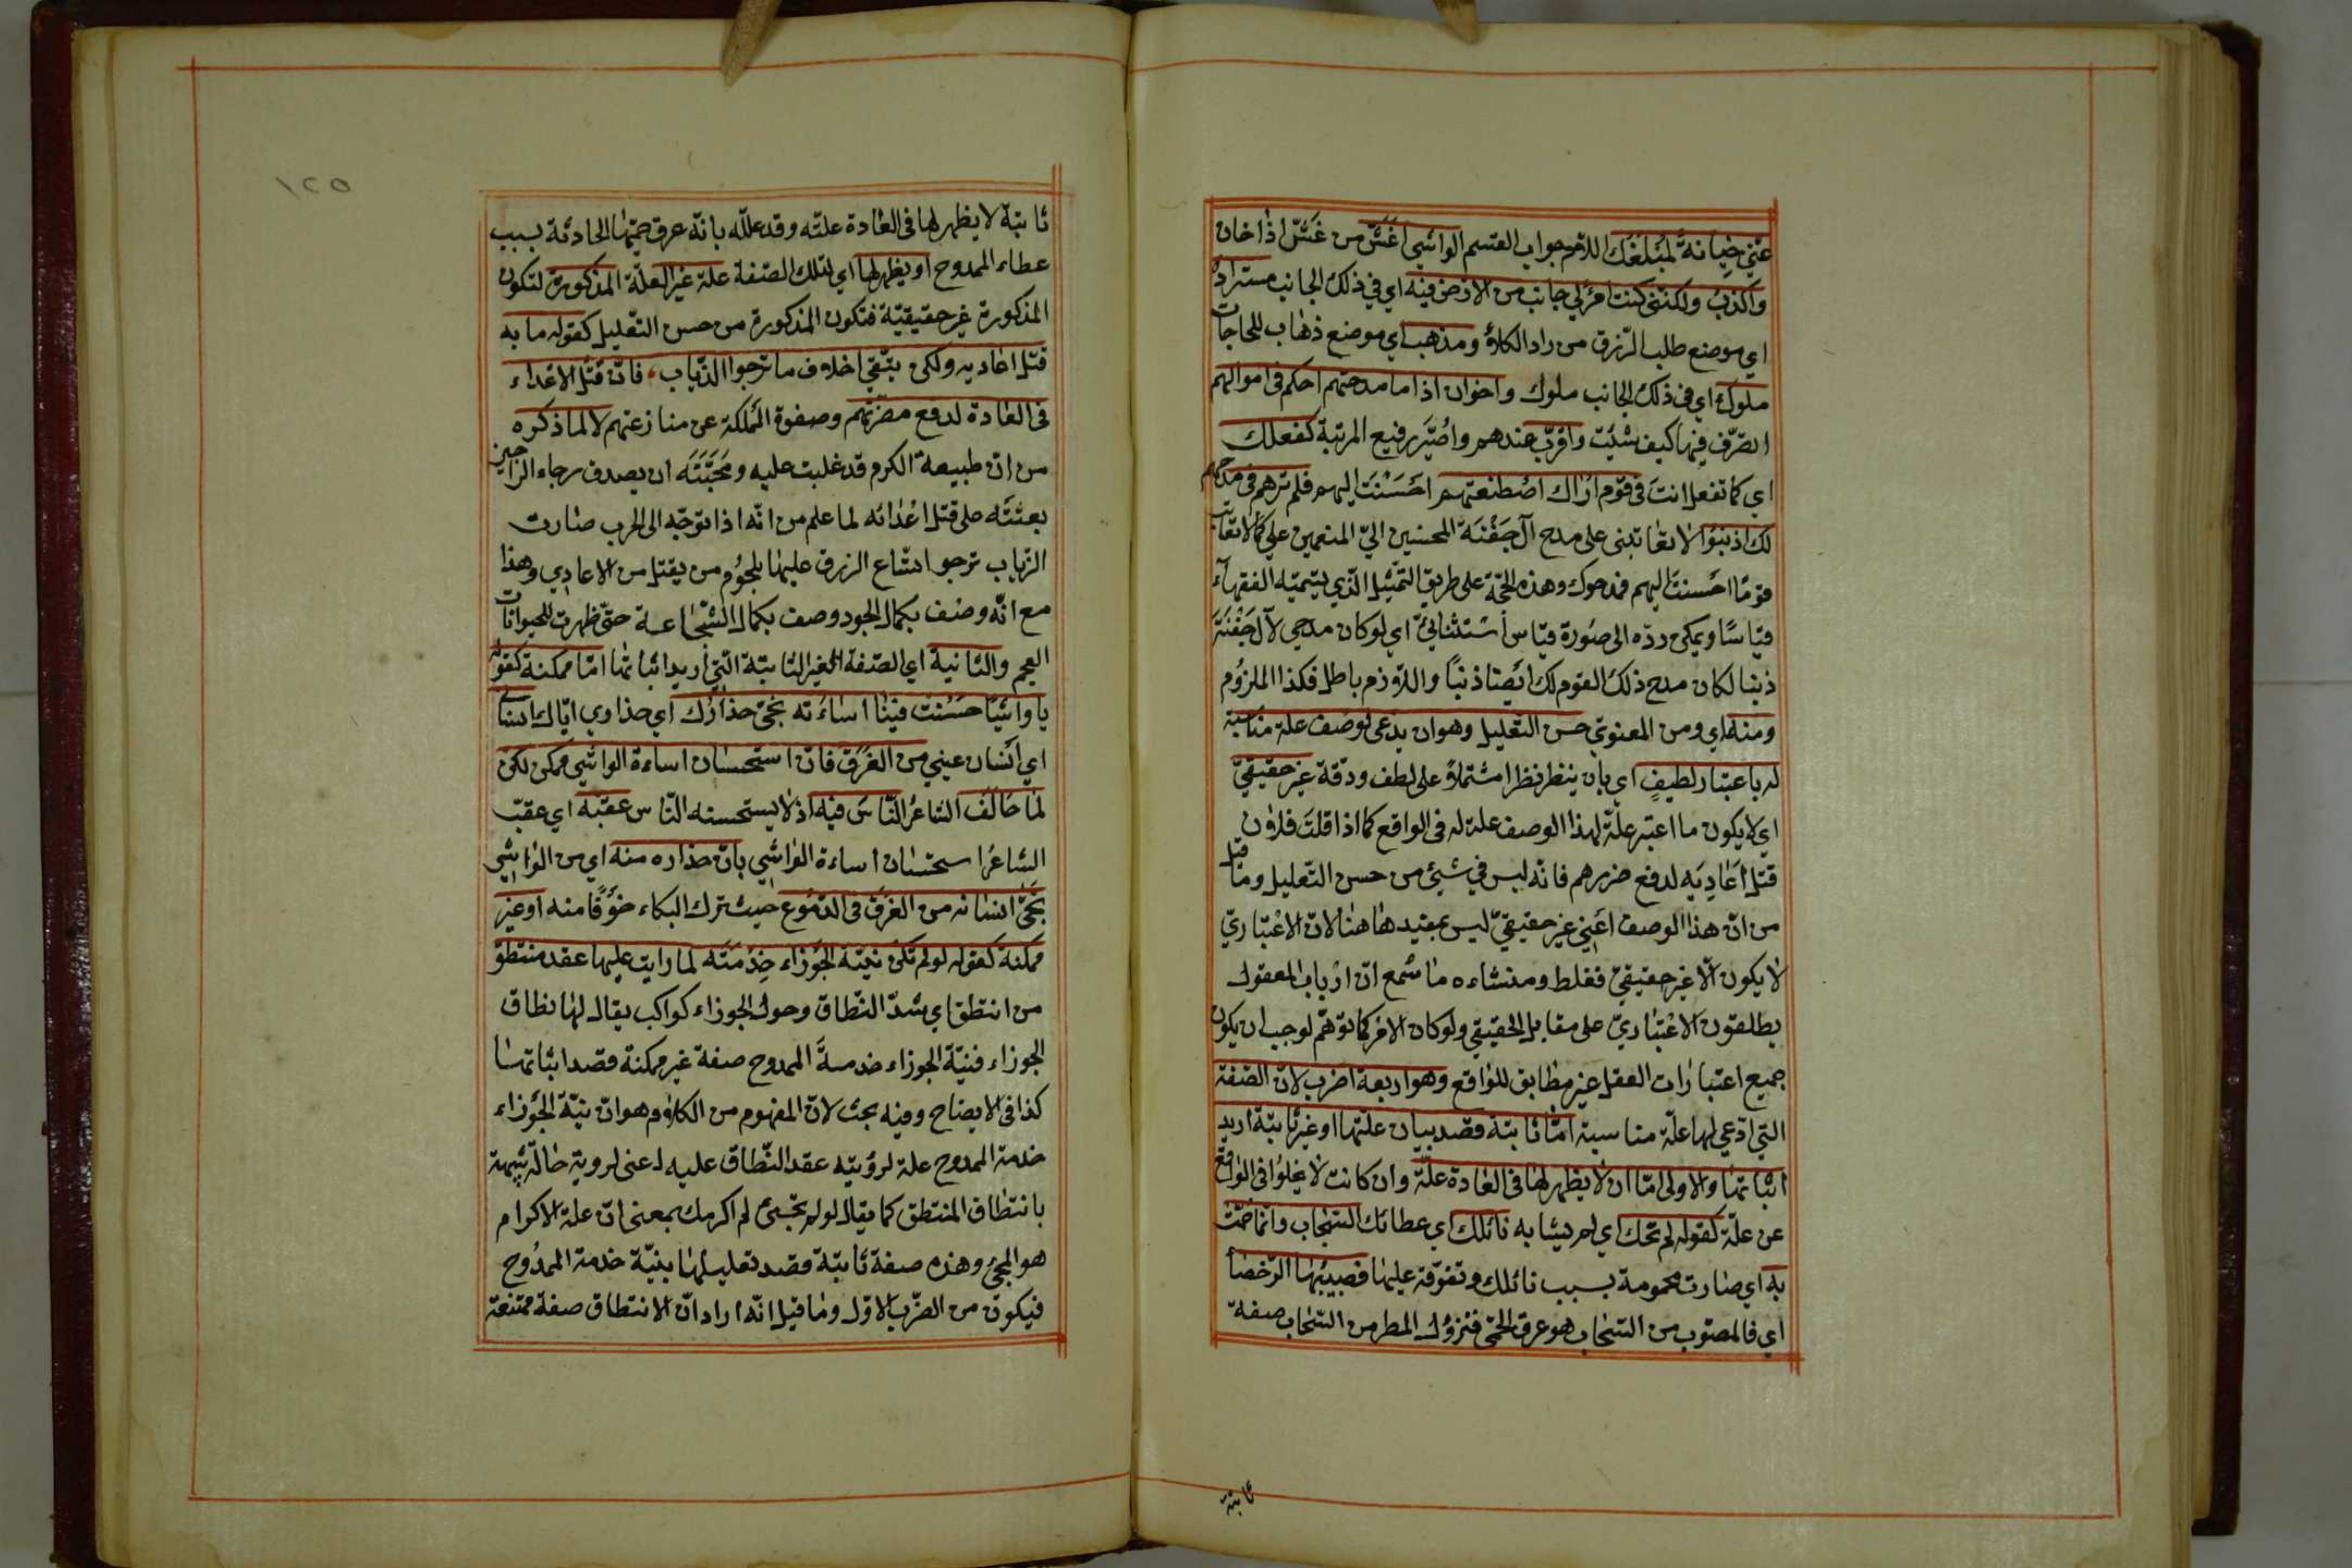 عنّي خيانة لمبلغك اللام جواب القسم الواشي اغش من غش اذا خان
واكذب ولكنّني كنت امرء لي جانب من الارض فيه اي في ذلك الجانب مستراد
اي موضع طلب الرّزق من راد الكلأ ومذهب اي موضع ذهاب للحاجات
ملوك اي في ذلك الجانب ملوك واخوان اذا ما مدحتهم احكم في اموالهم
اتصرّف فيها كيف شئت واقرّب عندهم واصيّر رفيع المرتبة كفعلك
اي كما تفعل انت في قوم اراك اصطنعتهم احسنت اليهم فلم ترهم في مدحهم
لك اذنبوا لا تعاتبني على مدح آل جَفْنَة المحسنين اليّ المنعمين عليّ كما لا تعاتب
قومًا احسنت اليهم فمدحوك وهذه الحجّة على طريق التمثيل الّذي يسمّيه الفقهاء
قياسًا ويمكن ردّه الى صورة قياس استثنائيّ اي لو كان مدحي لآل جَفْنَة
ذنبا لكان مدح ذلك القوم لك ايضا ذنبًا واللازم باطل فكذا الملزوم
ومنه اي ومن المعنويّ حسن التعليل وهو ان يدعى لوصف علة مناسبة
له باعتبار لطيفٍ اي بان ينظر نظرا مشتملا على لطف ودقة غير حقيقيّ
اي لا يكون ما اعتبر علّة لهذا الوصف علة له في الواقع كما اذا قلتَ فلان
قتل اَعَادِيَه لدفع ضررهم فانه ليس في شيئ من حسن التعليل وما قيل
من انّ هذا الوصف اَعْنِي غير حقيقيّ ليس بمفيد هاهنا لانّ الاعتباريّ
لا يكون الّا غير حقيقيّ فغلط ومنشاءه ما سمع انّ ارباب المعقول
يطلقون الاعتباريّ على مقابل الحقيقي ولو كان الامر كما توهّم لوجب ان يكون
جميع اعتبارات العقل غير مطابق للواقع وهو اربعة اضرب لانّ الصّفة
التي ادّعي لها علّة مناسبة امّا ثابتة قصد بيان علّتها او غير ثابتة اريد
اثباتها والاولى امّا ان لا يظهر لها في العادة علّة وان كانت لا يخلوا في الواقع
عن علّة كقوله لم تحك اي لم يشابه نائلك اي عطائك السّحاب وانما حمّت
به اي صارت محمومة بسبب نائلك وتفوّقه عليها فصبيبها الرّحضأ
اي فالمصبوب من السّحاب هو عرق الحمّى فنزول المطر من السّحاب صفة
ثابتة
١٢٥
ثابتة لا يظهر لها في العادة علته وقد علّله بانّه عرق حمّيها الحادثة بسبب
عطاء الممدوح او يظهر لها اي لتلك الصّفة علة غير العلّة المذكورة لتكون
المذكورة غير حقيقيّة فتكون المذكورة من حسن التّعليل كقوله ما به
قتل اعاديه ولكن يتّقي اخلاف ما ترجوا الذّئاب، فانّ قتل الاعداء
في العادة لدفع مضرّتهم وصفوة المملكة عن منازعتهم لا لما ذكره
من انّ طبيعة الكرم قد غلبت عليه ومَحَبَّتَه ان يصدق رجاء الراجين
بعثته على قتل اعدائه لما علم من انّه اذا توجّه الى الحرب صارت
الذّئاب ترجوا اتّساع الرزق عليها بلحوم من يقتل من الاعادي وهذا
مع انّه وصف بكمال الجود وصف بكمال الشّجاعة حتّى ظهرت للحيوانات
العجم والثانية اي الصّفة الغير الثابتة الّتي اريد اثباتها امّا ممكنة كقوله
يا واشيًا حَسُنت فينا اساءَته نجّى حذارك اي حذاري ايّاك انساني
اي انسان عيني من الغَرَق فانّ استحسان اساءة الواشي ممكن لكن
لمّا خالف الشاعر النّاس فيه اذ لا يستحسنه النّاس عقّبه اي عقّب
الشّاعر استحسان اساءة الواشي بانّ حذاره منه اي من الواشي
نَجّى انسانه من الغرَق في الدّموع حيث ترك البكاء خَوْفًا منه او غير
ممكنة كقوله لو لم تكن نيّة الجوزاء خِدْمَتَه لما رايت عليها عقد منتطق
من انتطق اي شدّ النّطاق وحول الجوزاء كواكب يقال لها نطاق
الجوزاء فنيّة الجوزاء خدمةَ الممدوح صفة غير ممكنة قصد اثباتها
كذا في الايضاح وفيه بحث لانّ المفهوم من الكلام هو انّ نيّة الجوزاء
خدمة الممدوح علة لرؤيته عقد النّطاق عليه اعنى لروية حالة شبيهة
بانتطاق المنتطق كما يقال لو لم تجئني لم اكرمك بمعنى انّ علة الاكرام
هو المجئ وهذه صفة ثابتة قصد تعليلها بنيّة خدمة الممدوح
فيكون من الضّرب الاوّل وما قيل انّه اراد انّ الانتطاق صفة ممتنعة